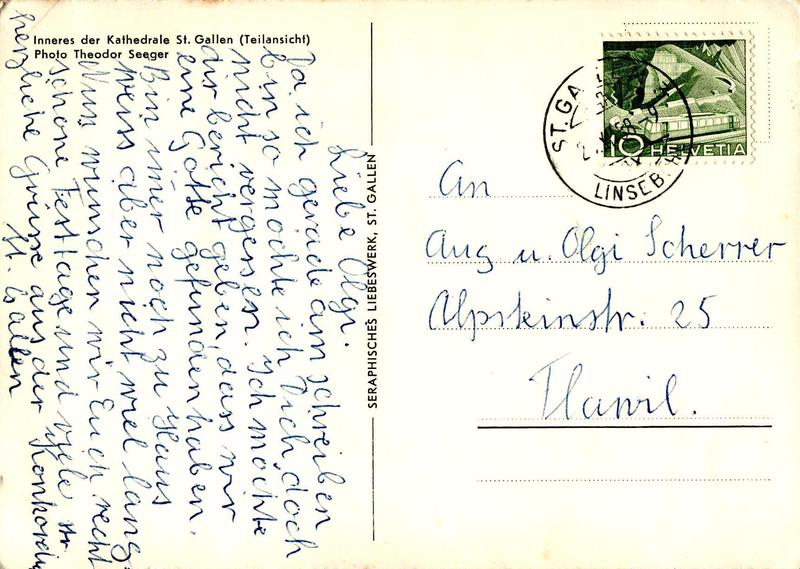 Inneres der Kathedrale St. Gallen (Teilansicht)
Photo Theodor Seeger
Liebe Olgi.
Da ich gerade am schreiben
bin so möchte ich Dich doch
nicht vergessen. Ich möchte
dir bericht geben, dass wir
eine Gotte gefunden haben.
Bin imer noch zu Haus
weiss aber nicht wiel lang.
Nun wünschen wir Euch recht
schöne Festtage und viele
herzliche Grüsse aus der Konkordia
str.
St. Gallen
SERAPHISCHES LIEBESWERK, ST. GALLEN
HELVETIA
10
ST. GALLEN
LINSEB
An
Aug u. Olgi Scherrer
Alpsteinstr. 25
Flawil.